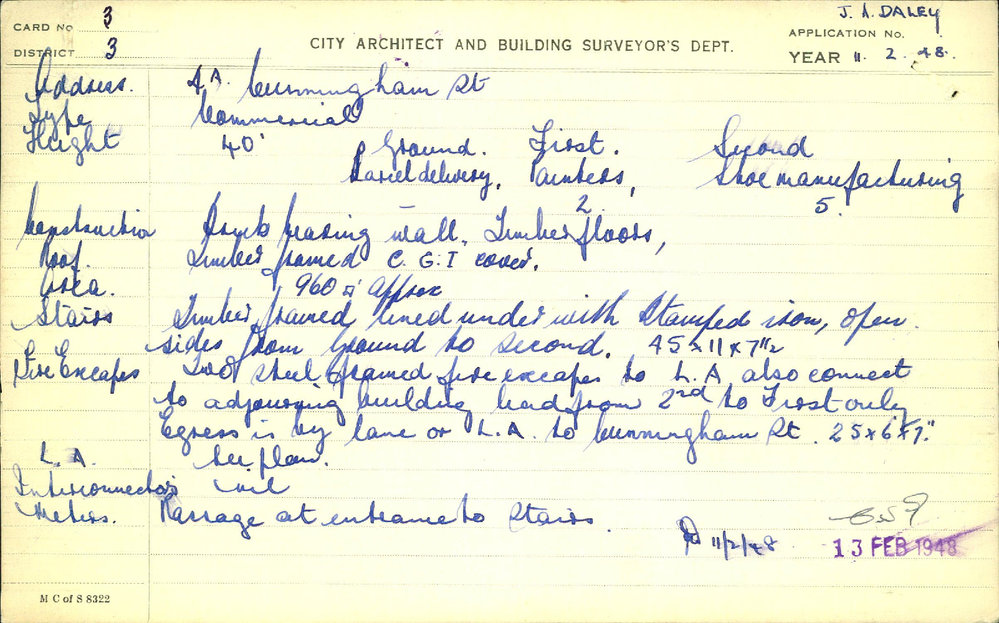 CARD No 3
J. A. DALEY
DISTRICT 3
CITY ARCHITECT AND BUILDING SURVEYOR'S DEPT.
APPLICATION No.
YEAR 11. 2. 48.
Address. 4A. Cunningham St
Type Commercial
Height 40' Ground. First. Second
Parcel delivery, Painters, Shoe manufacturing
2. 5.
Construction Brick bearing wall. Timber floors,
Roof. Timber framed C.G.I cover.
Area. 960 □' approx
Stairs Timber framed lined under with Stamped iron, open
sides from Ground to Second. 45 x 11 x 7 1/2
Fire Escapes Two steel framed fire escapes to L.A also connect
to adjourning building lead from 2nd to First only
Egress is by lane or L.A. to Cunningham St. 25 x 6 x 7"
L.A. See plan.
Interconnectors nil
Meters. Passage at entrance to Stairs.
11/2/48
13 FEB 1948
M C of S 8322